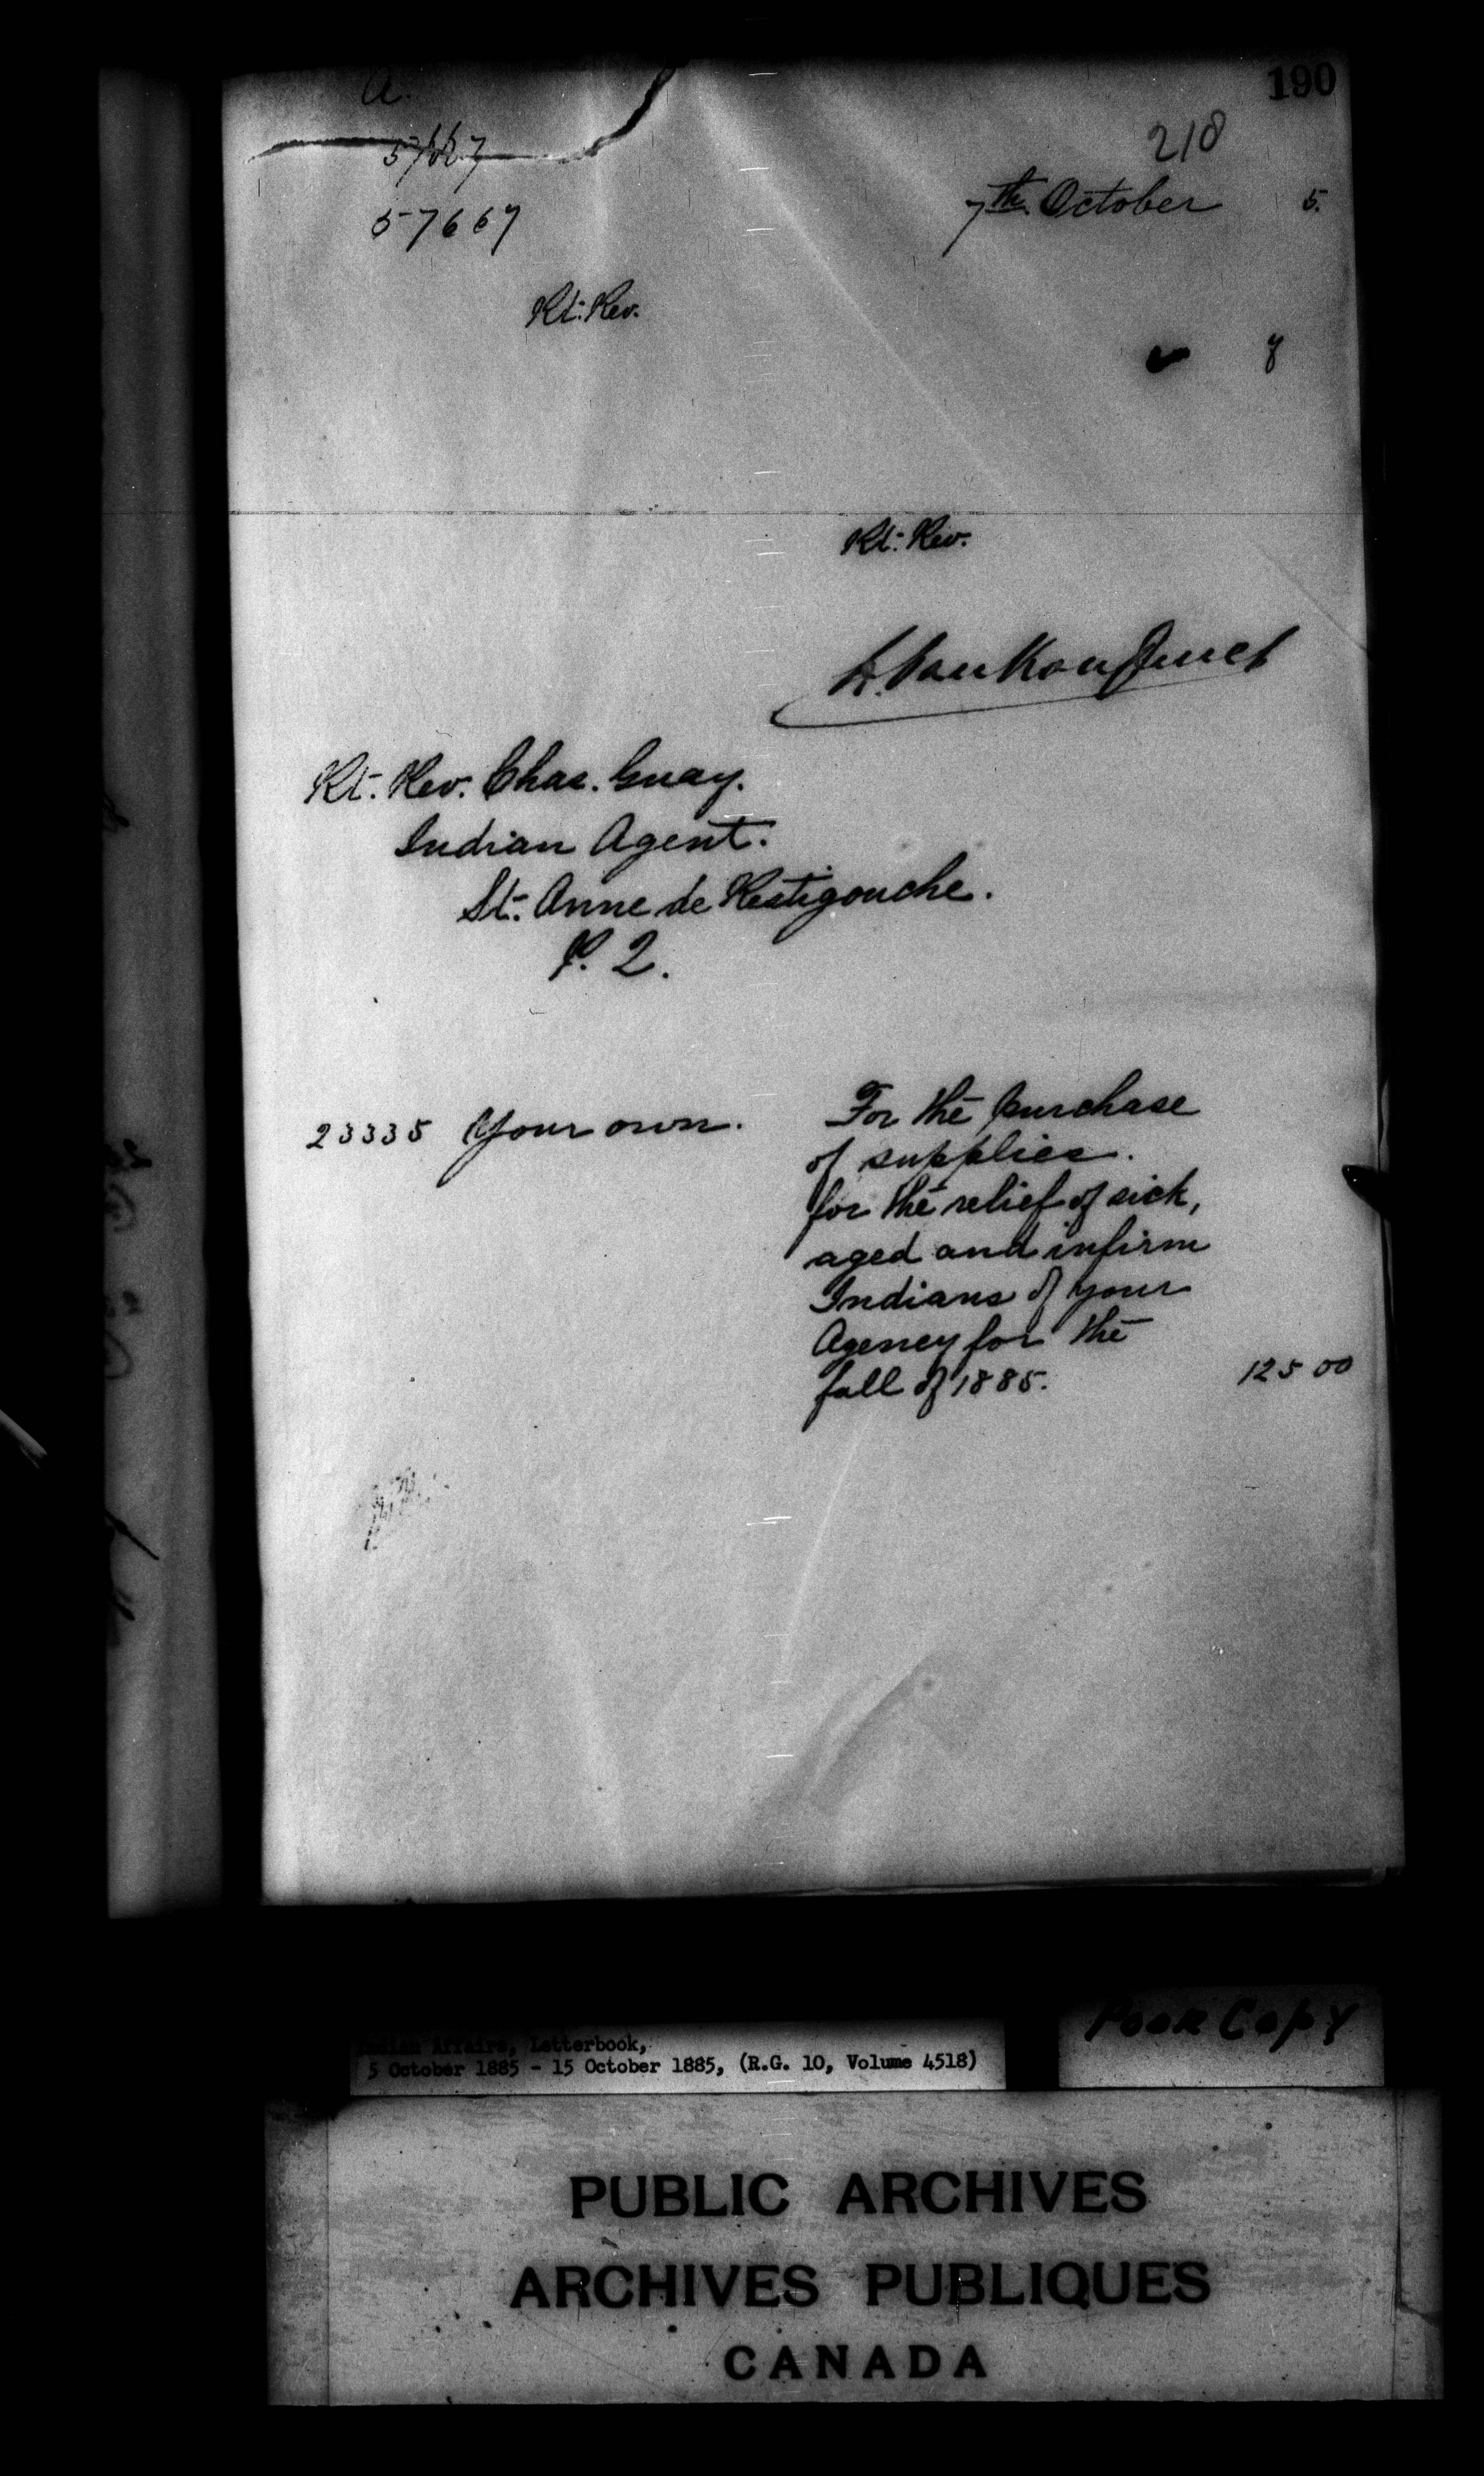 190
a.
218
57667
7th October 5.
57667
Rt. Rev.
8
Rt. Rev.
L. VanKoughnet
Rt. Rev. Chas. Guay.
Indian Agent.
St. Anne de Restigouche.
P. Q.
23335 Your own. For the purchase
of supplies.
for the relief of sick,
aged and infirm
Indians of your
Agency for the
fall of 1885. 125 00
Poor Copy
Indian Affairs, Letterbook,
5 October 1885 - 15 October 1885, (R.G. 10, Volume 4518)
PUBLIC ARCHIVES
ARCHIVES PUBLIQUES
CANADA